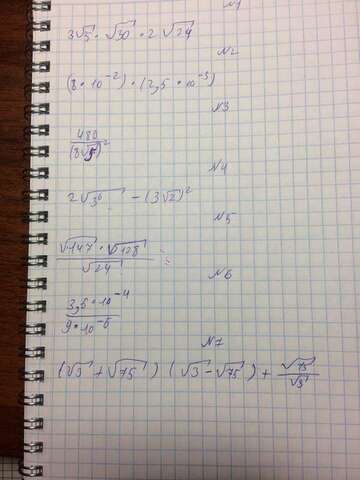 N1
3√5 · √30 · 2 √24
N2
(8 · 10⁻²) · (2,5 · 10⁻³)
N3
480
(8√5)²
N4
2√3⁶ - (3√2)²
N5
√147 · √128
√24 =
N6
3,5 · 10⁻⁴
9 · 10⁻⁶
N7
(√3 + √75) (√3 - √75) + √75
√3